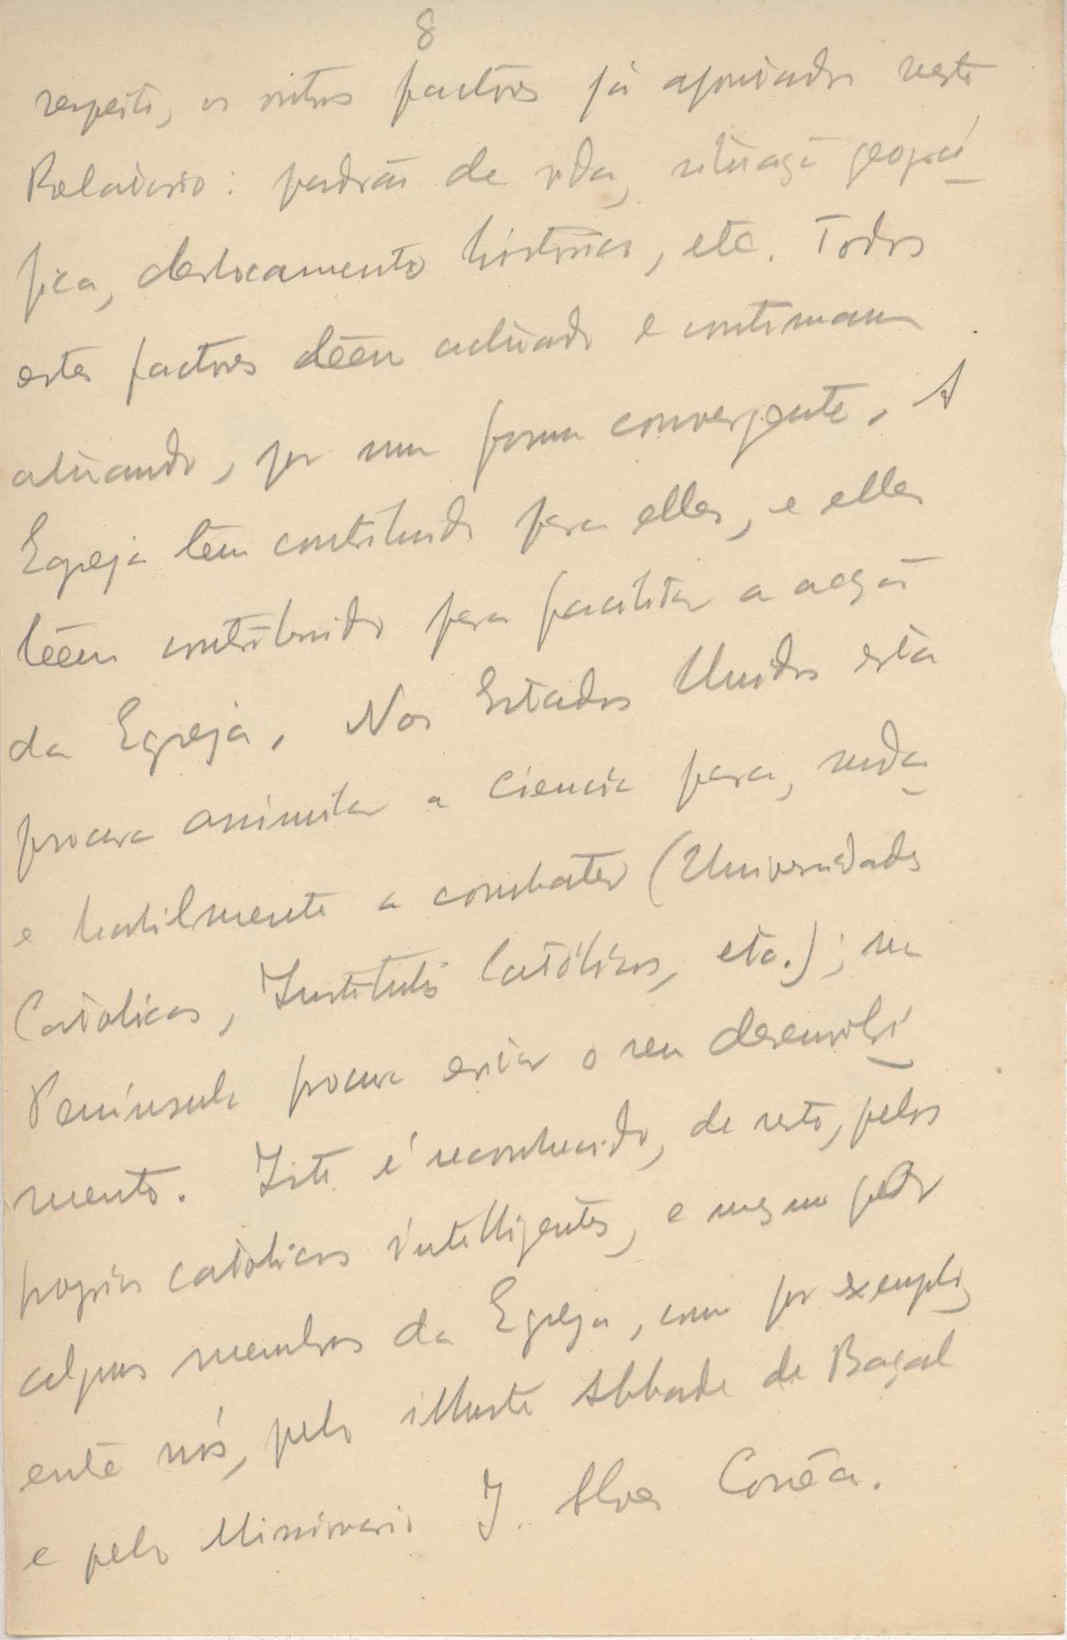 8
respeito, os outros factores já apontados neste
Relatorio: padrão de vida, situação geográ-
fica, deslocamento histórico, etc. Todos
estes factores têem actuado e continuam
atuando, por uma forma convergente. A
Egreja tem contribuido para elles, e elles
têem contribuido para facilitar a acção
da Egreja. Nos Estados Unidos esta
procura assimilar a ciencia para,
e habilmente a combater (Universidades
Catolicas, Institutos Católicos, etc.); na
Peninsula procura evitar o seu desenvolvi-
mento. Isto é reconhecido, de resto, pelos
proprios catolicos intelligentes, e mesmo por
alguns membros da Egreja, como por exemplo,
entre nós, pelo illustre Abbade de Baçal
e pelo Missionario J. Alves Corrêa.